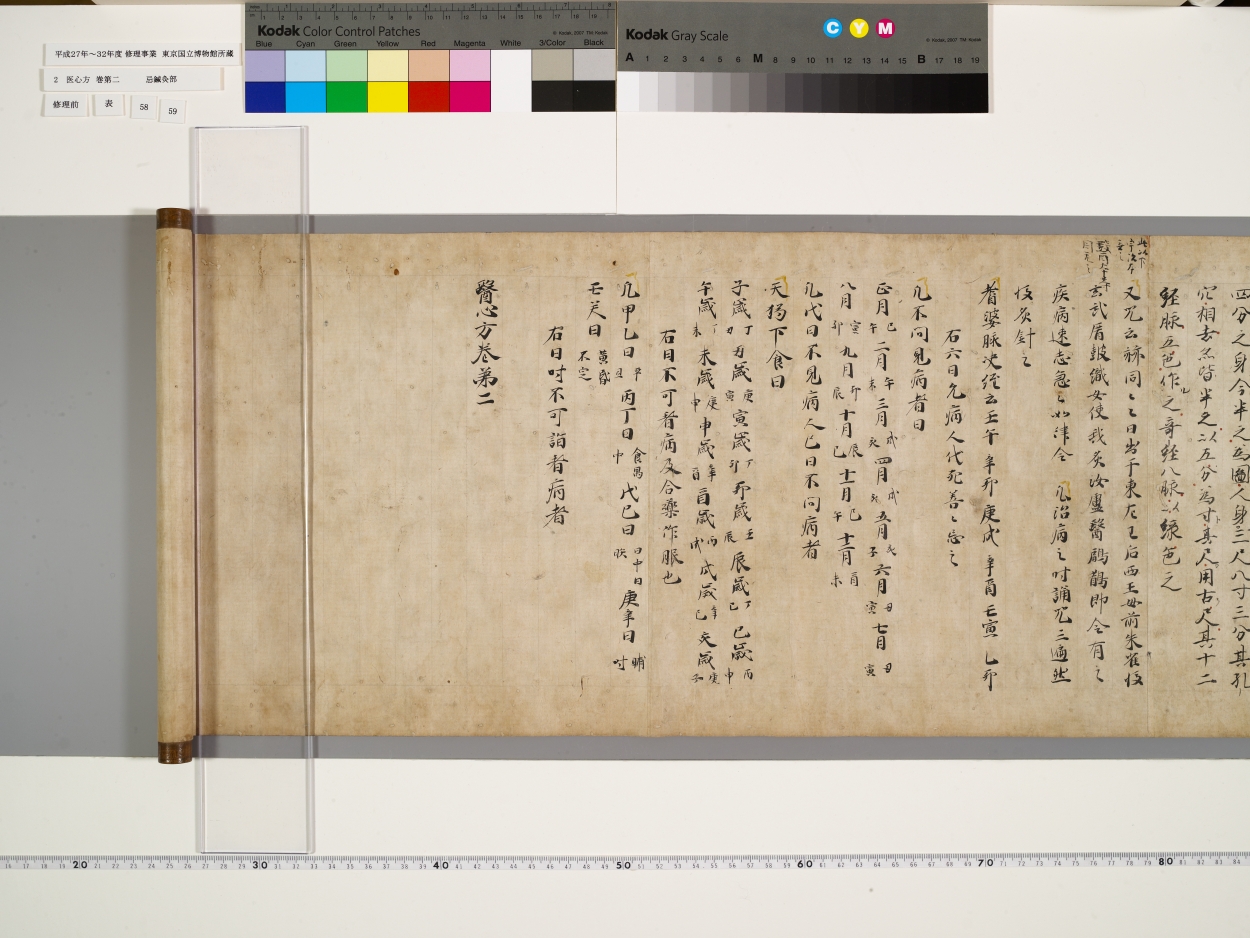 平成27年～32年度 修理事業 東京国立博物館所蔵
2 医心方 巻第二 忌鍼灸部
修理前 表 58 59
Kodak Color Control Patches
© Kodak, 2007 TM: Kodak
Blue Cyan Green Yellow Red Magenta White 3/Color Black
Kodak Gray Scale
C Y M
© Kodak, 2007 TM: Kodak
A 1 2 3 4 5 6 M 8 9 10 11 12 13 14 15 B 17 18 19
四分之身今半之為圖人身三尺八寸三分其孔
穴相去亦皆半之以五分為寸其尺用古尺其十二
経脉五色作之奇経八脉以緑色之
又咒云 同々日出于東左王后西王母前朱雀後
玄武 織女使我灸汝盧醫扁鵲即令有之
疾病速 急々如律令 凡治病之时誦咒三遍然
後灸針之
耆婆脉决経云壬午 辛卯 庚戌 辛酉 壬寅 乙卯
右六日允病人代死善々忌之
凡不問見病者日
正月巳午 二月午未 三月戌亥 四月 五月 六月丑寅 七月丑寅
八月寅卯 九月卯辰 十月辰巳 十一月巳午 十二月酉未
凡戊日不見病人巳日不問病者
天狗下食日
子歳丁 丑歳庚寅 寅歳丁卯 卯歳壬辰 辰歳丁巳 巳歳丙申
午歳丁未 未歳庚申 申歳辛酉 酉歳丙戌 戌歳辛巳 亥歳庚子
右日不可者病及合藥作服也
凡甲乙日平旦 丙丁日食禺中 戊己日日中日昳 庚辛日晡时
壬癸日黄昏不定
右日时不可詣者病者
醫心方巻第二
20 30 40 50 60 70 80